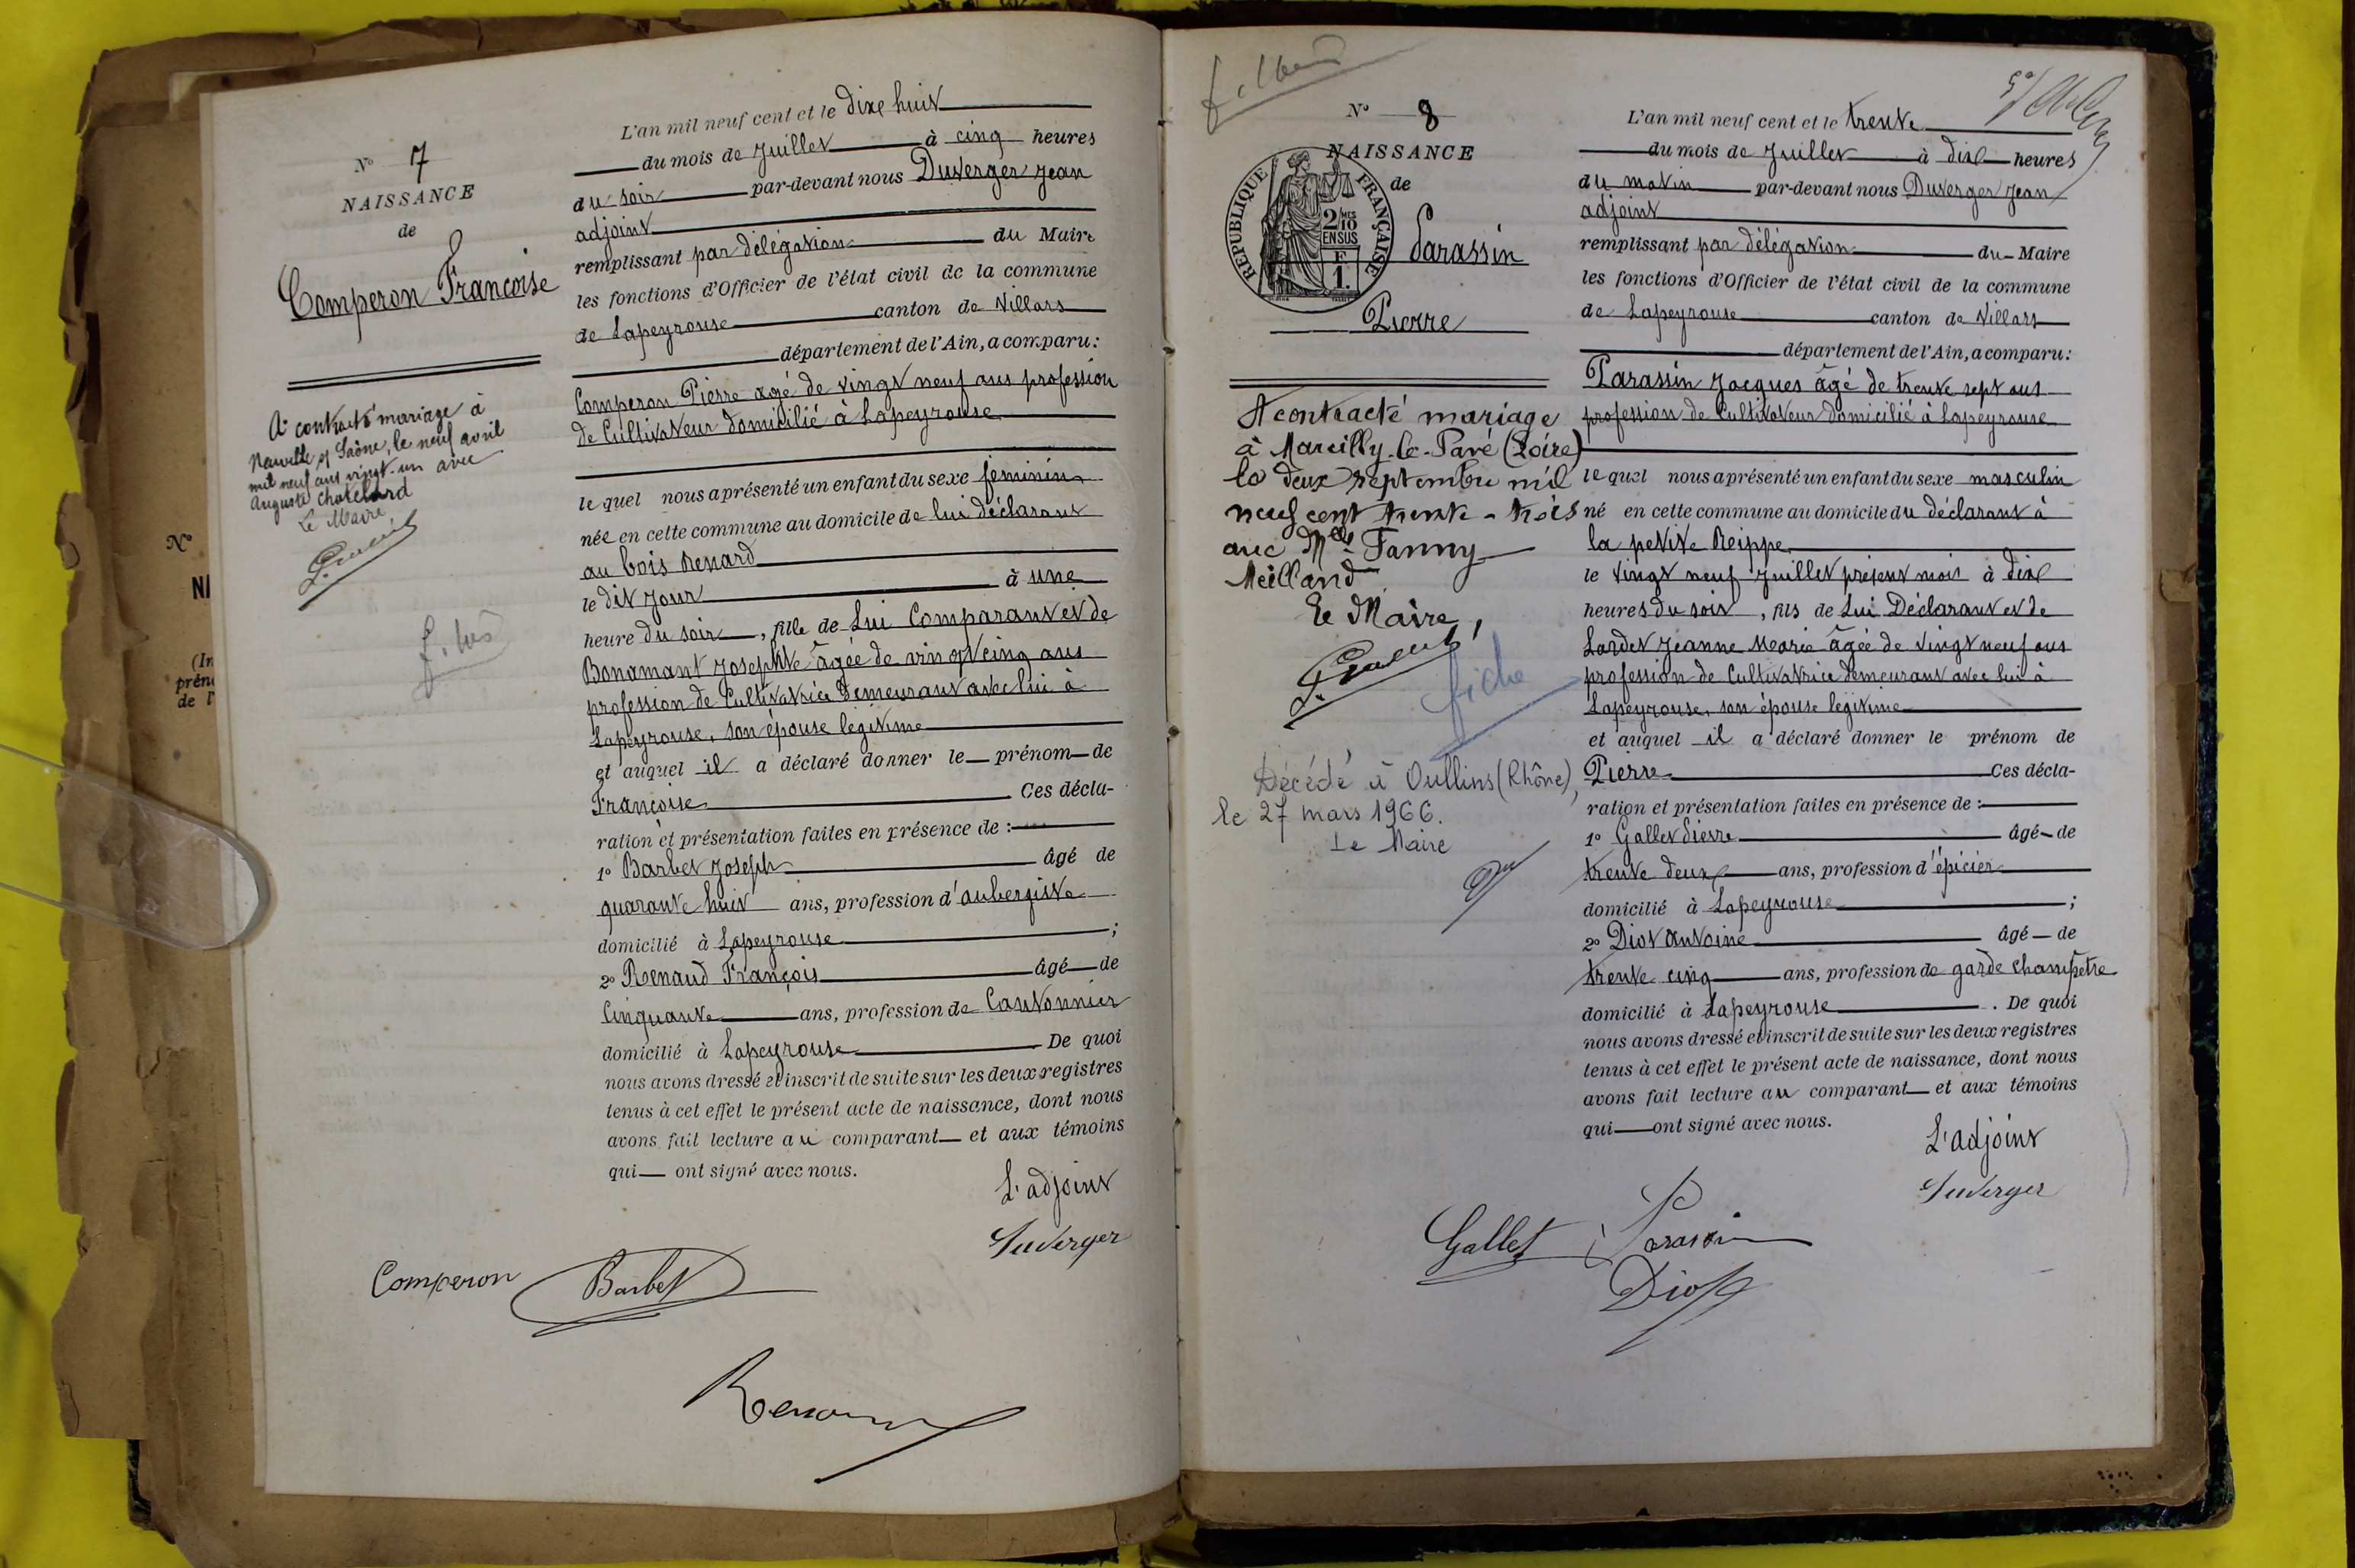 N° 7
NAISSANCE
de
Comperon Francoise
A contracté mariage à
Neuville s/ Saône, le neuf avril
mil neuf cent vingt-un avec
Auguste Chatelard
Le Maire
L'an mil neuf cent et le dixe huit
du mois de Juillet à cinq heures
du soir par-devant nous Duverger Jean
adjoint
remplissant par délégation du Maire
les fonctions d'Officier de l'état civil de la commune
de Lapeyrouse canton de Villars
département de l'Ain, a comparu:
Comperon Pierre agé de vingt neuf ans profession
de Cultivateur domicilié à Lapeyrouse
le quel nous a présenté un enfant du sexe feminin
née en cette commune au domicile de lui déclarant
au bois Renard
le dit jour à une
heure du soir, fille de Lui Comparant et de
Bonamant Josephte âgée de vingt cinq ans
profession de Cultivatrice demeurant avec lui à
Lapeyrouse, son épouse légitime
et auquel il a déclaré donner le prénom de
Françoise Ces décla-
ration et présentation faites en présence de :
1° Barbet Joseph âgé de
quarante huit ans, profession d'aubergiste
domicilié à Lapeyrouse ;
2° Renaud François âgé de
Cinquante ans, profession de Cantonnier
domicilié à Lapeyrouse De quoi
nous avons dressé et inscrit de suite sur les deux registres
tenus à cet effet le présent acte de naissance, dont nous
avons fait lecture au comparant et aux témoins
qui ont signé avec nous.
L'adjoint
Duverger
Comperon Barbet
Renaud
N° 8
NAISSANCE
de
RÉPUBLIQUE FRANÇAISE
2/10 MES
EN SUS
F
1.
Parassin
Pierre
A contracté mariage
à Marcilly-le-Pavé (Loire)
le deux septembre mil
neuf cent trente-trois
avec Melle Fanny
Meilland
Le Maire,
fiche
Décédé à Oullins (Rhône),
le 27 mars 1966.
Le Maire
L'an mil neuf cent et le trente
du mois de Juillet à dix heures
du matin par-devant nous Duverger Jean
adjoint
remplissant par délégation du Maire
les fonctions d'Officier de l'état civil de la commune
de Lapeyrouse canton de Villars
département de l'Ain, a comparu:
Parassin Jacques âgé de trente sept ans
profession de Cultivateur domicilié à Lapeyrouse
le quel nous a présenté un enfant du sexe masculin
né en cette commune au domicile du déclarant à
la petite Reippe
le vingt neuf Juillet présent mois à dix
heures du soir, fils de Lui Déclarant et de
Lardet Jeanne Marie âgée de vingt neuf ans
profession de Cultivatrice demeurant avec lui à
Lapeyrouse, son épouse légitime
et auquel il a déclaré donner le prénom de
Pierre Ces décla-
ration et présentation faites en présence de :
1° Gallet Pierre âgé de
trente deux ans, profession d'épicier
domicilié à Lapeyrouse ;
2° Diot Antoine âgé de
trente cinq ans, profession de garde champetre
domicilié à Lapeyrouse . De quoi
nous avons dressé et inscrit de suite sur les deux registres
tenus à cet effet le présent acte de naissance, dont nous
avons fait lecture au comparant et aux témoins
qui ont signé avec nous.
L'adjoint
Duverger
Gallet Parassin
Diot